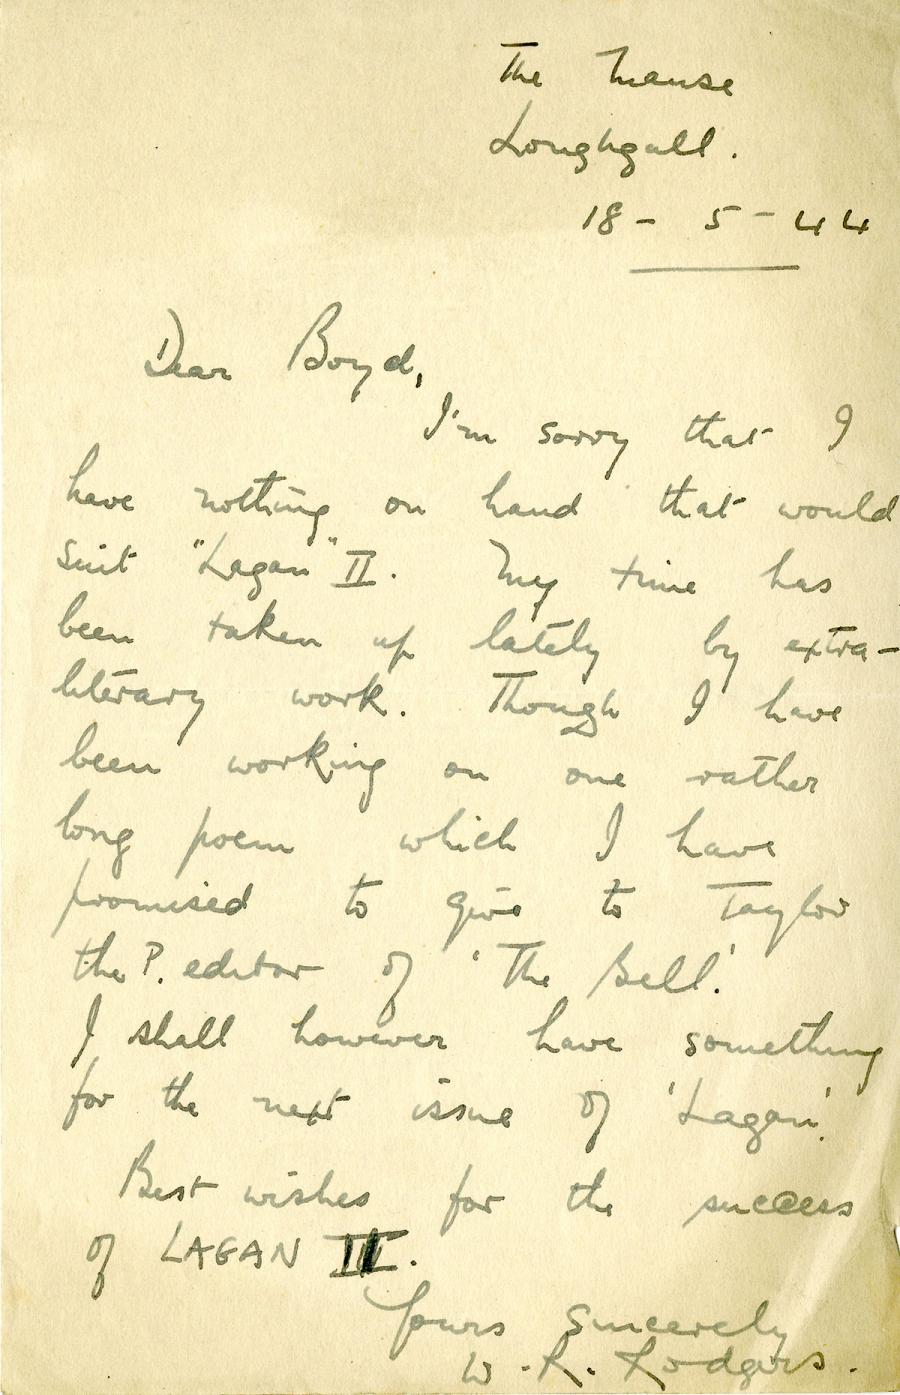 The Manse
Loughgall.
18 - 5 - 44
Dear Boyd,
I'm sorry that I
have nothing on hand that would
suit "Lagan" II. My time has
been taken up lately by extra-
literary work. Though I have
been working on one rather
long poem which I have
promised to give to Taylor
the P. editor of 'The Bell'.
I shall however have something
for the next issue of 'Lagan'.
Best wishes for the success
of LAGAN II.
Yours sincerely
W. R. Rodgers.